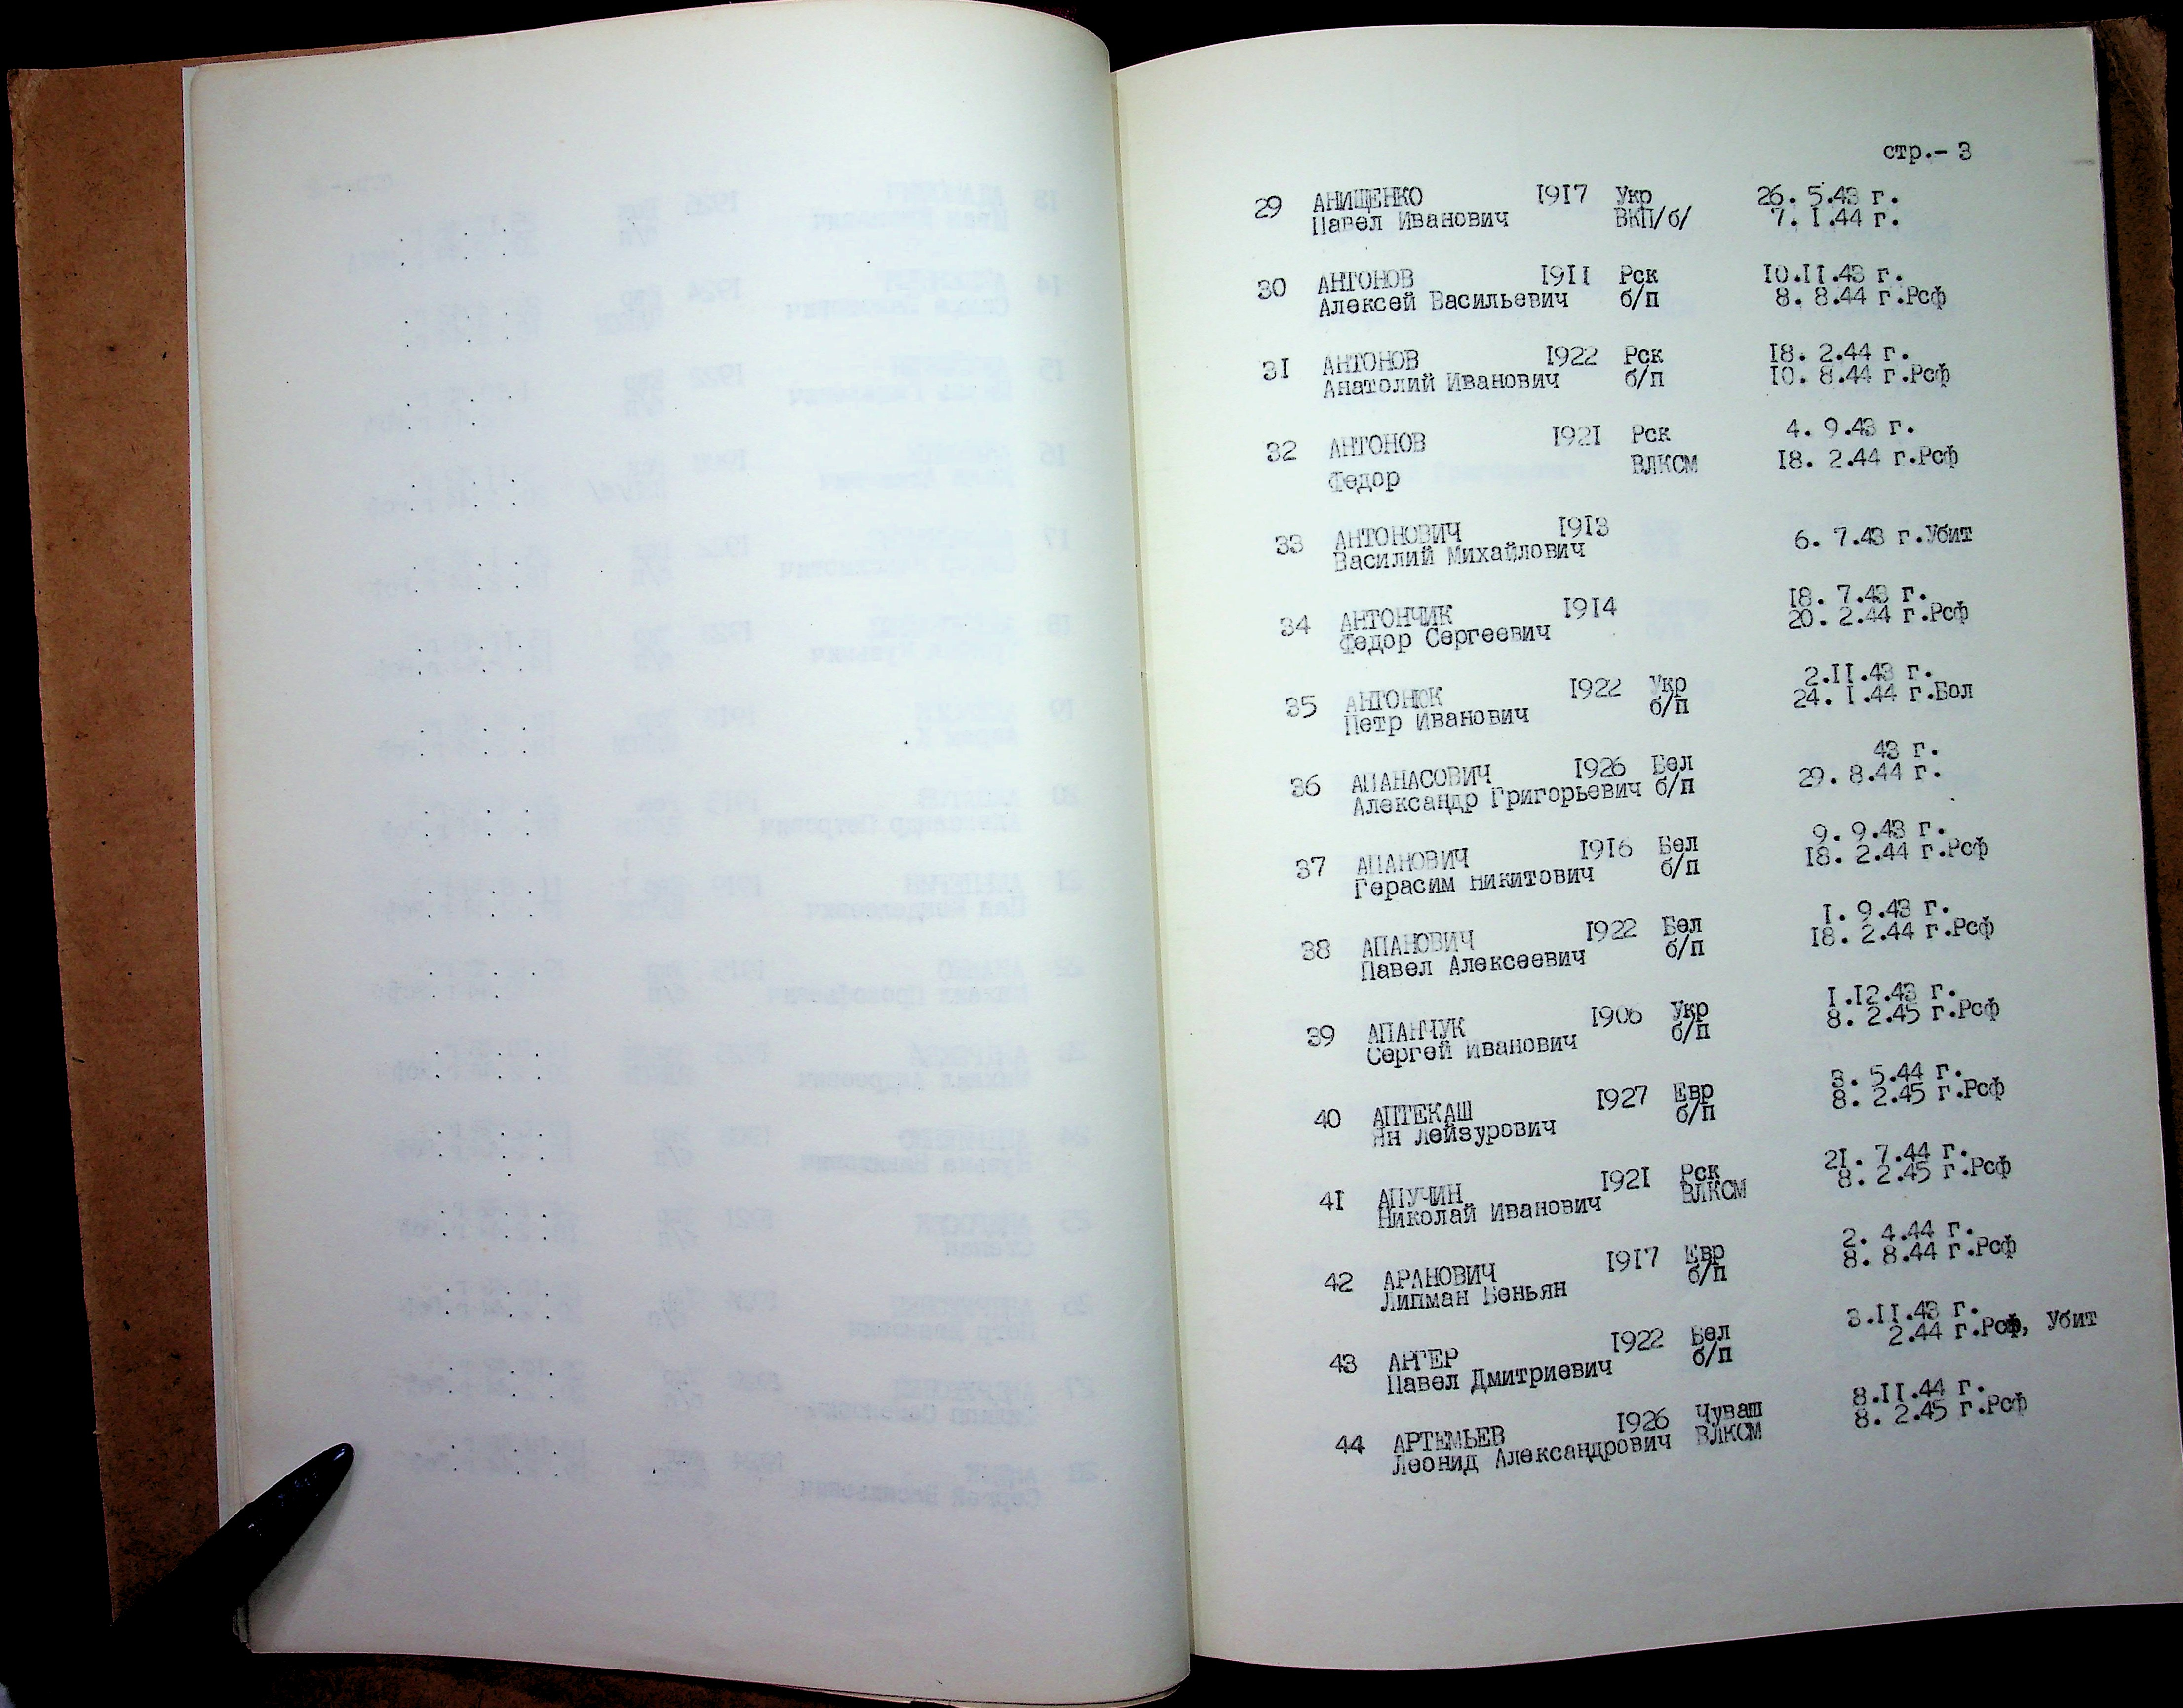 стр.- 3
29 АНИЩЕНКО 1917 Укр 26. 5.43 г.
Павел Иванович ВКП/б/ 7. 1.44 г.
30 АНТОНОВ 1911 Рск 10.11.43 г.
Алексей Васильевич б/п 8. 8.44 г.Рсф
31 АНТОНОВ 1922 Рск 18. 2.44 г.
Анатолий Иванович б/п 10. 8.44 г.Рсф
32 АНТОНОВ 1921 Рск 4. 9.43 г.
Федор ВЛКСМ 18. 2.44 г.Рсф
33 АНТОНОВИЧ 1913 6. 7.43 г.Убит
Василий Михайлович
34 АНТОНЧИК 1914 18. 7.43 г.
Федор Сергеевич 20. 2.44 г.Рсф
35 АНТОНЮК 1922 Укр 2.11.43 г.
Петр Иванович б/п 24. 1.44 г.Бол
36 АПАНАСОВИЧ 1926 Бел 43 г.
Александр Григорьевич б/п 29. 8.44 г.
37 АПАНОВИЧ 1916 Бел 9. 9.43 г.
Герасим Никитович б/п 18. 2.44 г.Рсф
38 АПАНОВИЧ 1922 Бел 1. 9.43 г.
Павел Алексеевич б/п 18. 2.44 г.Рсф
39 АПАНЧУК 1906 Укр 1.12.43 г.
Сергей Иванович б/п 8. 2.45 г.Рсф
40 АПТЕКАШ 1927 Евр 3. 5.44 г.
Ян Лейзурович б/п 8. 2.45 г.Рсф
41 АПУЧИН 1921 Рск 21. 7.44 г.
Николай Иванович ВЛКСМ 8. 2.45 г.Рсф
42 АРАНОВИЧ 1917 Евр 2. 4.44 г.
Липман Беньян б/п 8. 8.44 г.Рсф
43 АРГЕР 1922 Бел 3.11.43 г.
Павел Дмитриевич б/п 2.44 г.Рсф, Убит
44 АРТЕМЬЕВ 1926 Чуваш 8.11.44 г.
Леонид Александрович ВЛКСМ 8. 2.45 г.Рсф